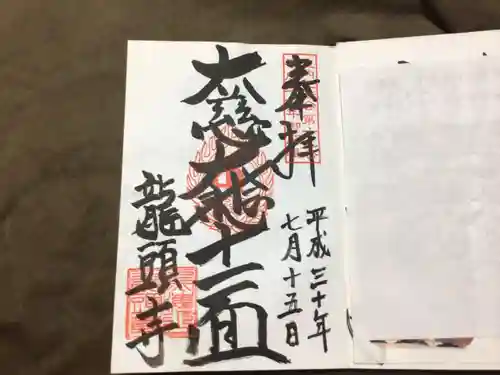 奉拝
平成三十年
七月十五日
大慈大悲十一面
龍頭寺